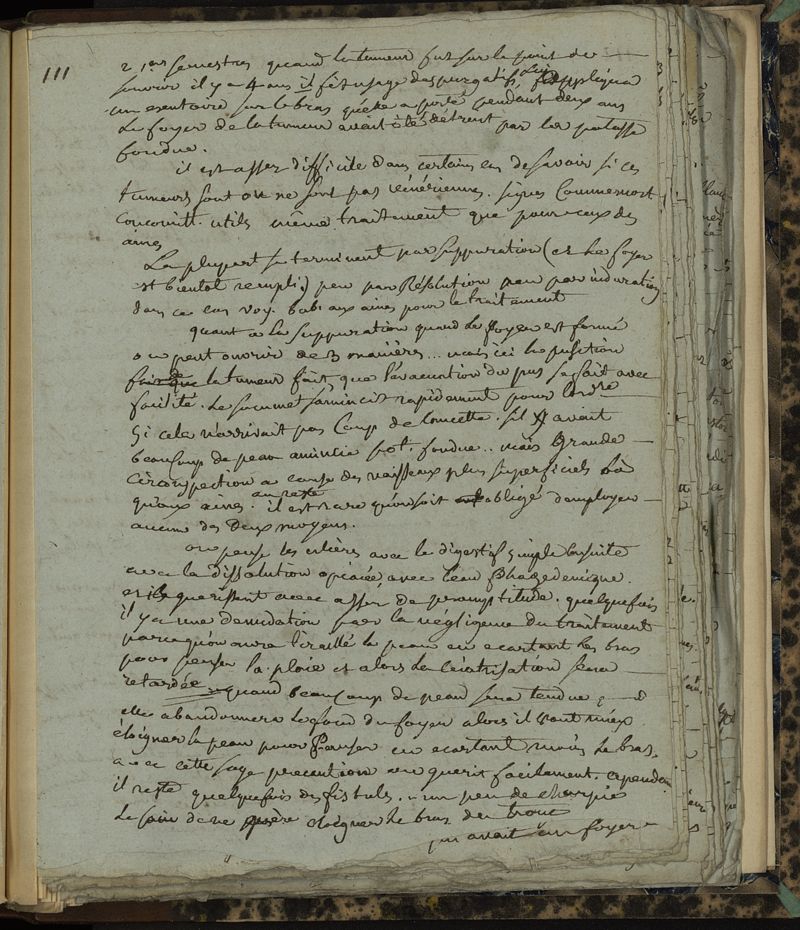 111
2 1ers semestres quand la tumeur fut sur le point de
s'ouvrir il y a 4 ans il fit usage des purgatifs, appliqua
un exutoire sur le bras qu'elle a porté pendant deux ans
Le foyer de la tumeur avait été détruit par la potasse
fondue.
il est assez difficile dans certains cas de savoir si ces
tumeurs sont ou ne sont pas vénériennes. signes Commemor t
Concomitt. utils même traitement que pour ceux des
aines
La plupart se terminent par suppuration (et le foyer
est bientot rempli) peu par Résolution peu par induration
dans ce cas voy. bub. aux aines pour le traitement
quant à la suppuration quand le foyer est formé
on peut ouvrir de 3 manières... mais ici la position
la tumeur fait que l'évacuation du pus se fait avec
facilité. Le sommet s'amincit rapidement pour l'ordre
Si cela n'arrivait pas Coup de lancette. s'il y avait
beaucoup de peau amincie pot. fondue.. mais Grande
circonspection a cause des vaisseaux plus superficiels là
qu'aux aines. au reste il est rare qu'on soit obligé d'employer
aucun des deux moyens.
on panse les ulcères avec le digestif simple ensuite
avec la dissolution opiacée avec l'eau Phagedenique.
et ils guerissent avec assez de promptitude. quelquefois
il y a une denudation par la négligence du traitement
parcequ'on aura tiraillé la peau en ecartant les bras
pour penser la plaie et alors la cicatrisation sera
retardée quand beaucoup de peau sera tendue
elle abandonnera le fond du foyer alors il vaut mieux
éloigner la peau pour Panser en ecartant moins le bras.
avec cette sage precaution on guerit facilement. cependant
il reste quelquefois des fistules. un peu de charpie
Le soin de ne eloigner le bras du tronc
avait un foyer